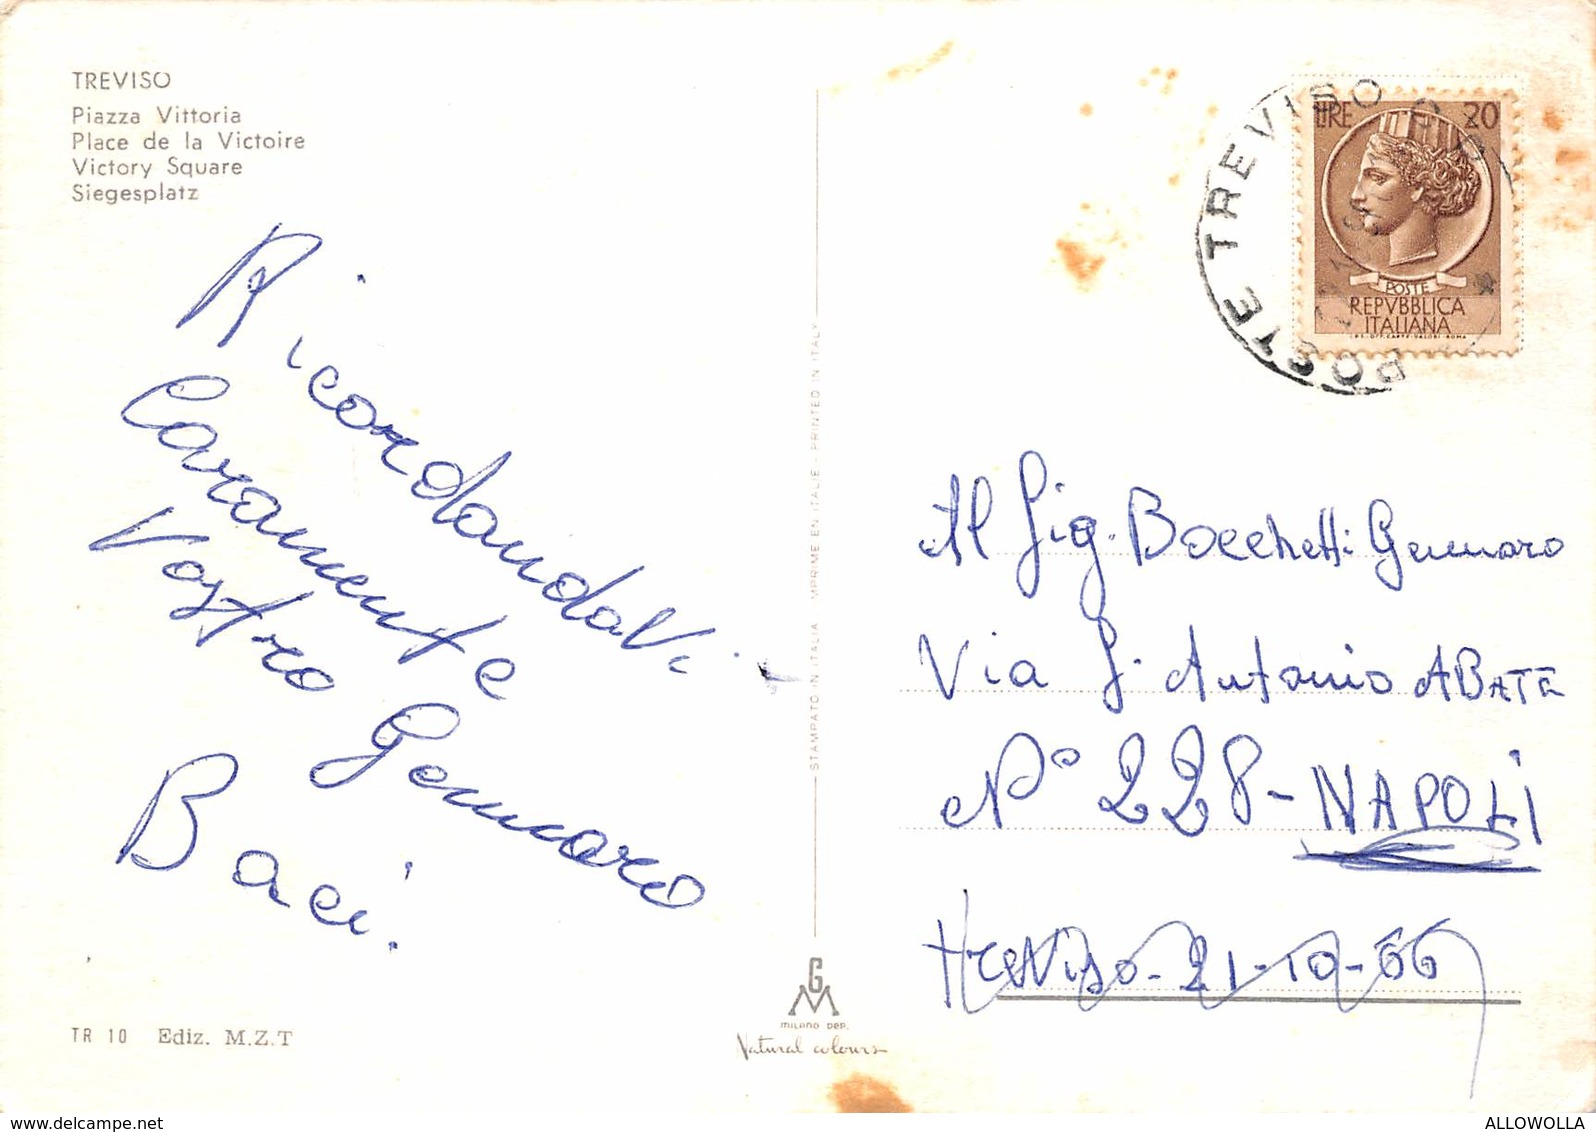 TREVISO
Piazza Vittoria
Place de la Victoire
Victory Square
Siegesplatz
RicordandoVi
Caramente
Vostro Gennaro
Baci.
TR 10 Ediz. M.Z.T
STAMPATO IN ITALIA - IMPRIME EN ITALIE - PRINTED IN ITALY
GM
MILANO DEP.
Natural colours
POSTE TREVISO
LIRE 20
POSTE
REPVBBLICA
ITALIANA
I.P.S. OFF. CARTE-VALORI-ROMA
Al Sig. Bocchetti Gennaro
Via S. Antonio ABATE
N° 228 - NAPOLI
Treviso - 21-10-66
www.delcampe.net
ALLOWOLLA